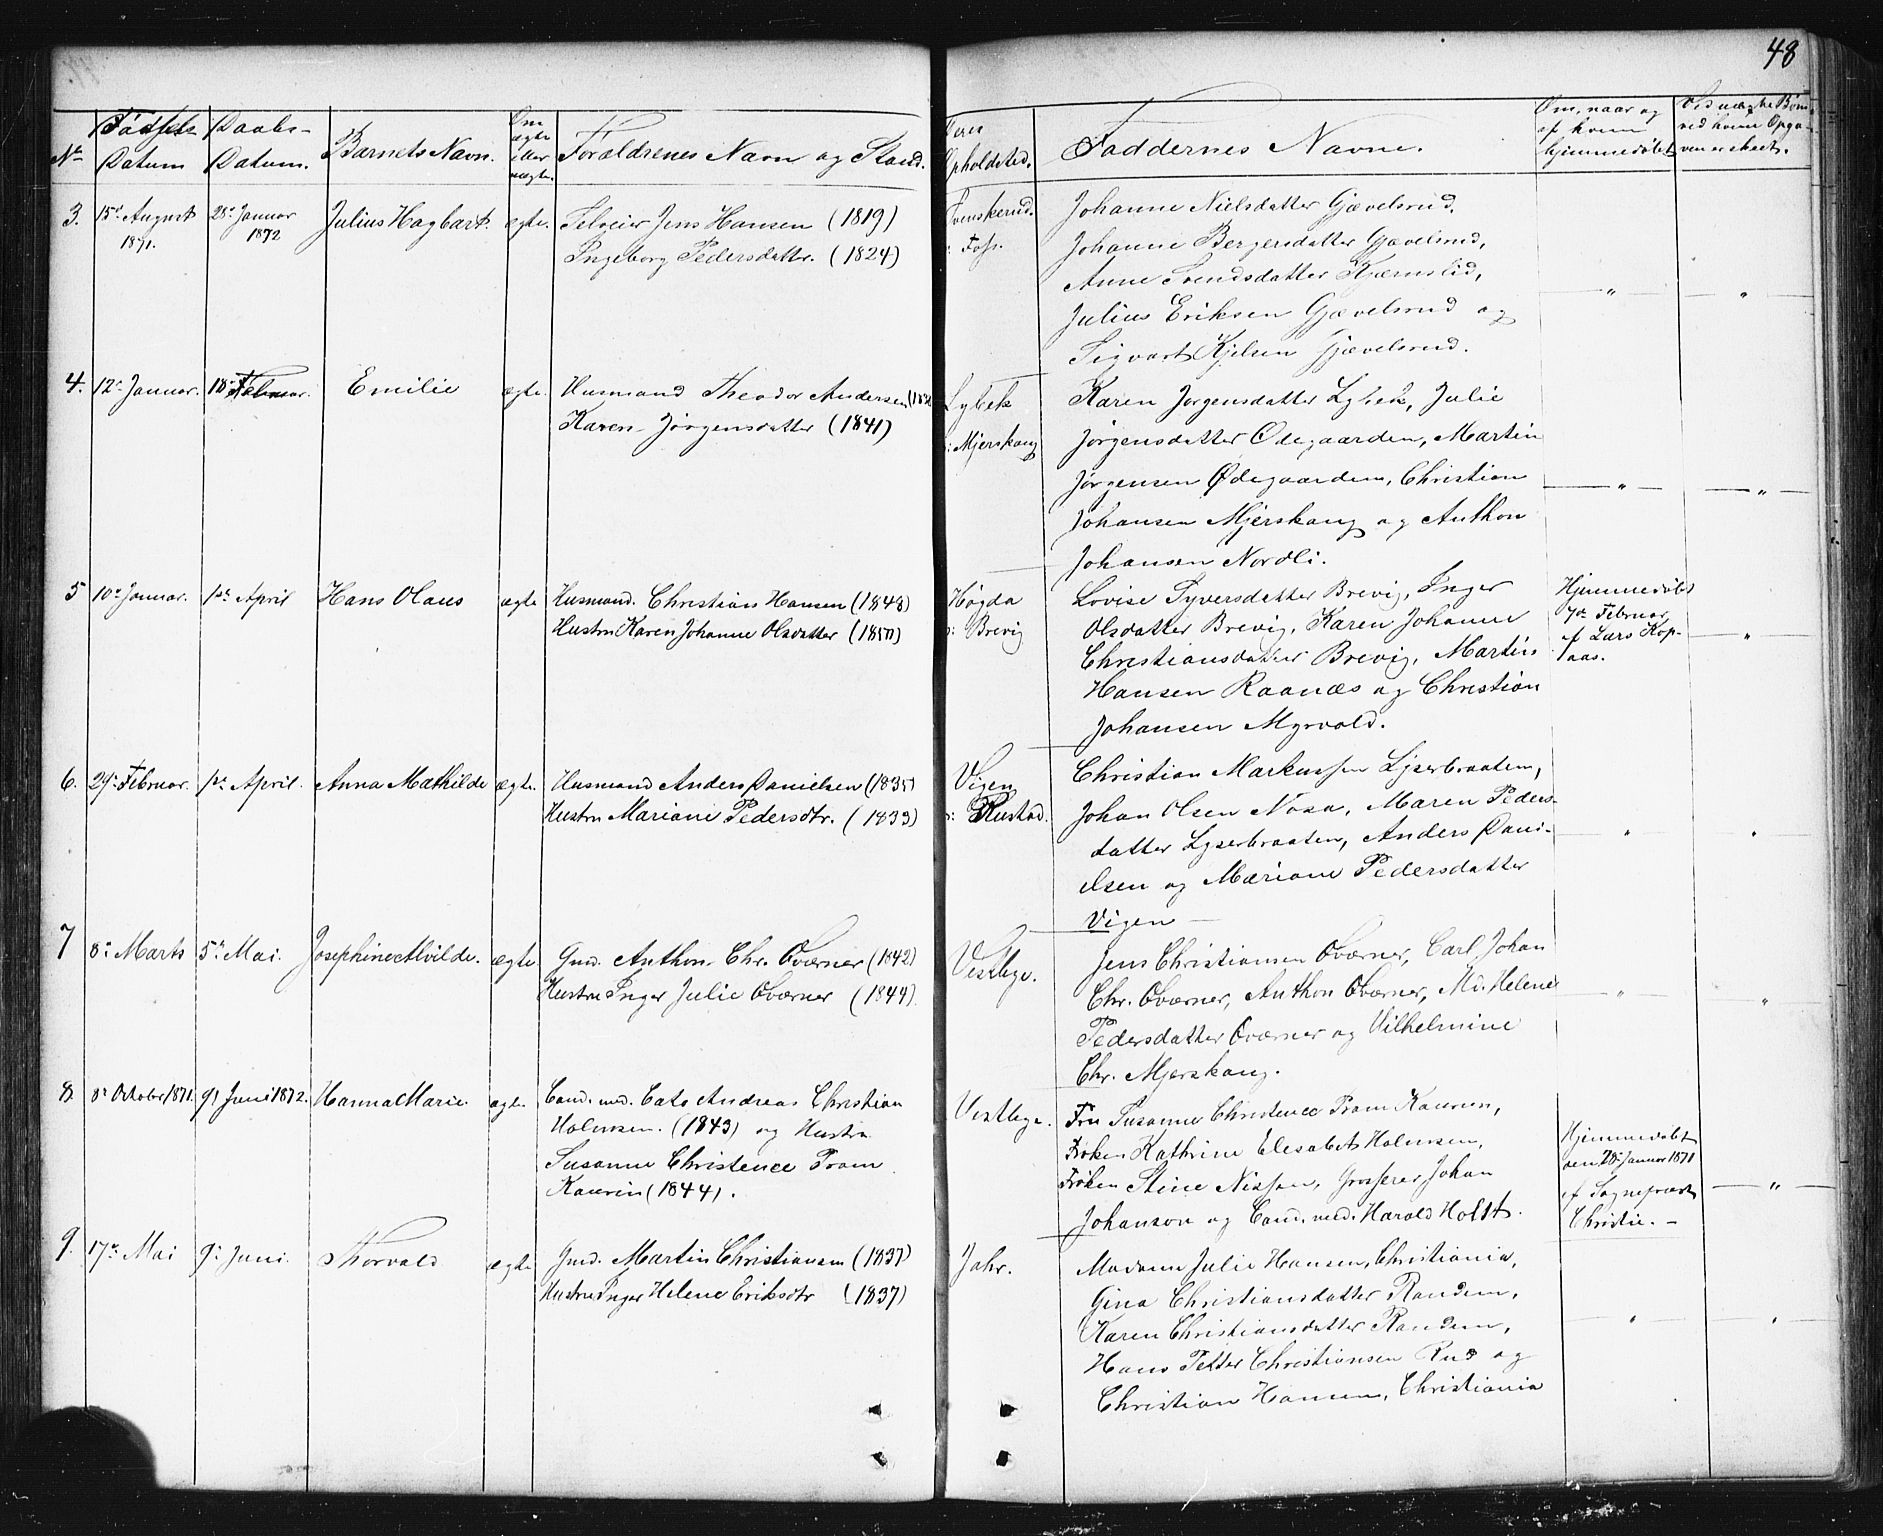 48
No Fødsels Datum
Daabs-Datum.
Barnets Navn.
Om ægte eller uægte.
Forældrenes Navn og Stand.
Deres Opholdsted.
Faddernes Navne.
Om, naar og af hvem hjemmedøbt
Ved uægte Børn, ved hvem Opgaven er skeet.
3. 15de August 1871. 28de Januar 1872 Julius Hagbart. ægte. Selveier Jens Hansen (1819)
Ingeborg Pedersdatter. (1824)
Svenskerud. Foss.
Johanne Nielsdatter Gjævelsrud,
Johanne Bergersdatter Gjævelsrud,
Anne Svendsdatter Kjærnslid,
Julius Eriksen Gjævelsrud og
Sigvart Kjelsen Gjævelsrud.
" "
4. 12te Januar. 18de Februar. Emilie ægte. Husmand Theodor Andersen
Karen Jørgensdatter (1841)
Lybek
Mjerskaug
Karen Jørgensdatter Lybek, Julie
Jørgensdatter Ødegaarden, Martin
Jørgensen Ødegaarden, Christian
Johansen Mjerskaug og Anthon
Johansen Nordli.
" "
5 10de Januar. 1ste April Hans Olaus ægte Husmand. Christian Hansen (1848)
Hustru Karen Johanne Olsdatter (1850)
Høgda
Brevig
Lovise Syversdatter Brevig, Inger
Olsdatter Brevig, Karen Johanne
Christiansdatter Brevig, Martin
Hansen Raanæs og Christian
Johansen Myrvold.
Hjemmedøbt
7de Februar
af Lars Kop-
aas.
"
6. 29de Februar. 1ste April. Anna Mathilde ægte. Husmand Anders Danielsen (1835)
Hustru Mariane Pedersdtr. (1833)
Vigen
Rustad.
Christian Markussen Lyserbraaten,
Johan Olsen Nasa, Maren Peders-
datter Lyserbraaten, Anders Dani-
elsen og Mariane Pedersdatter
Vigen —
" "
7 8de Marts 5te Mai. Josephine Alvilde. ægte Gmd. Anthon Chr. Oværner (1842)
Hustru Inger Julie Oværner (1844).
Vestbye.
Jens Christiansen Oværner, Carl Johan
Chr. Oværner, Anthon Oværner, Md. Helene
Pedersdatter Oværner og Vilhelmine
Chr. Mjerskaug.
" "
8. 8de Oktober 1871. 9de Juni 1872. Hanna Marie. ægte. Cand. med. Cato Andreas Christian
Holmsen. (1843) og Hustru
Susanne Christence Pram
Kaurin (1844).
Vestbye.
Fru Susanne Christence Pram Kaurin,
Frøken Kathrine Elesabet Holmsen,
Frøken Stine Nissen, Grosserer Johan
Johanson og Cand. med. Harald Holst.
Hjemmedøbt
den 28de Januar 1871
af Sognepræst
Christie. —
"
9. 17de Mai 9de Juni. Thorvald ægte Gmd. Martin Christiansen (1837)
Hustru Inger Helene Eriksdtr (1837)
Jahr.
Madame Julie Hansen, Christiania,
Gina Christiansdatter Randem,
Karen Christiansdatter Randem,
Hans Petter Christiansen Rud og
Christian Hansen, Christiania
" "